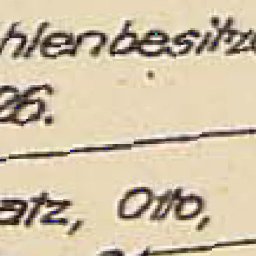 hlenbesitze
26.
atz, Otto,